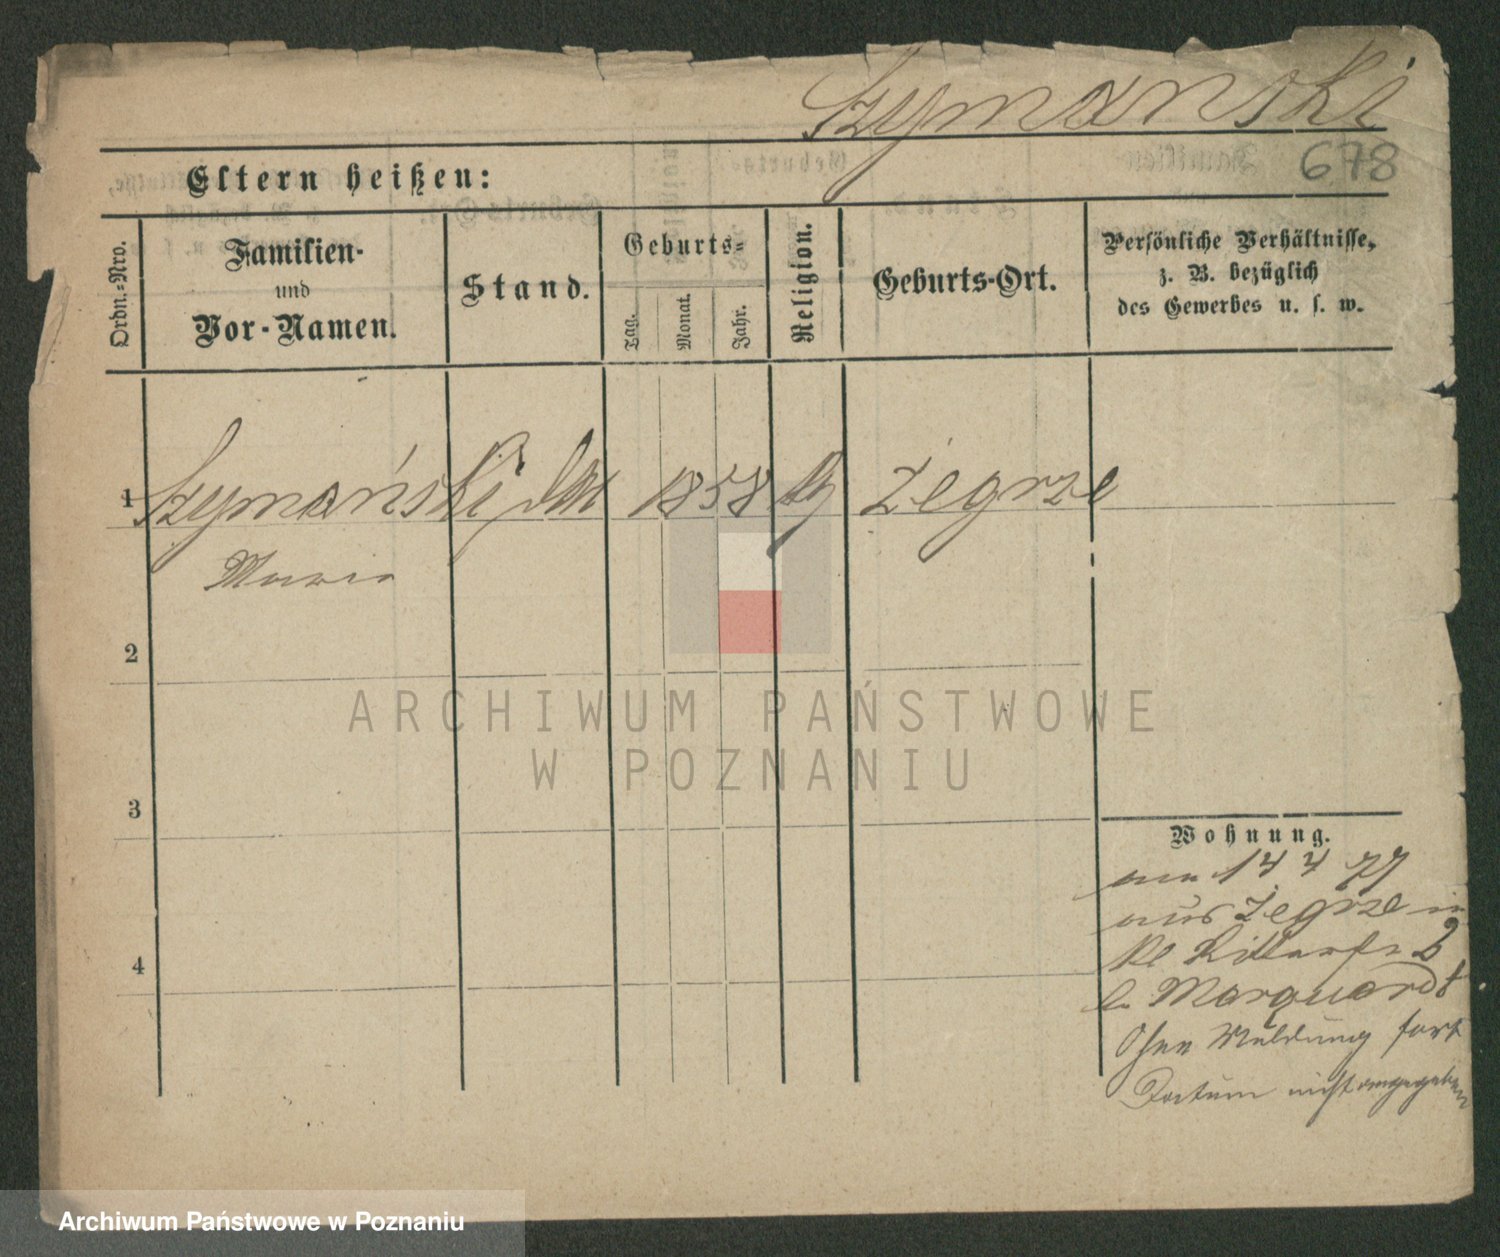 Szymanski
678
Eltern heißen:
Ordn.-Nro.
Familien-
und
Vor-Namen.
Stand.
Geburts-
Tag.
Monat.
Jahr.
Religion.
Geburts-Ort.
Persönliche Verhältnisse,
z. B. bezüglich
des Gewerbes u. s. w.
1 Szymański 1858 Żegrze
Maria
2
3
4
Wohnung.
am 14 4 77
aus Żegrze in
Kl Ritterstr 2
b. Marquardt
Ohne Meldung fort
Datum nicht angegeben
ARCHIWUM PAŃSTWOWE
W POZNANIU
Archiwum Państwowe w Poznaniu